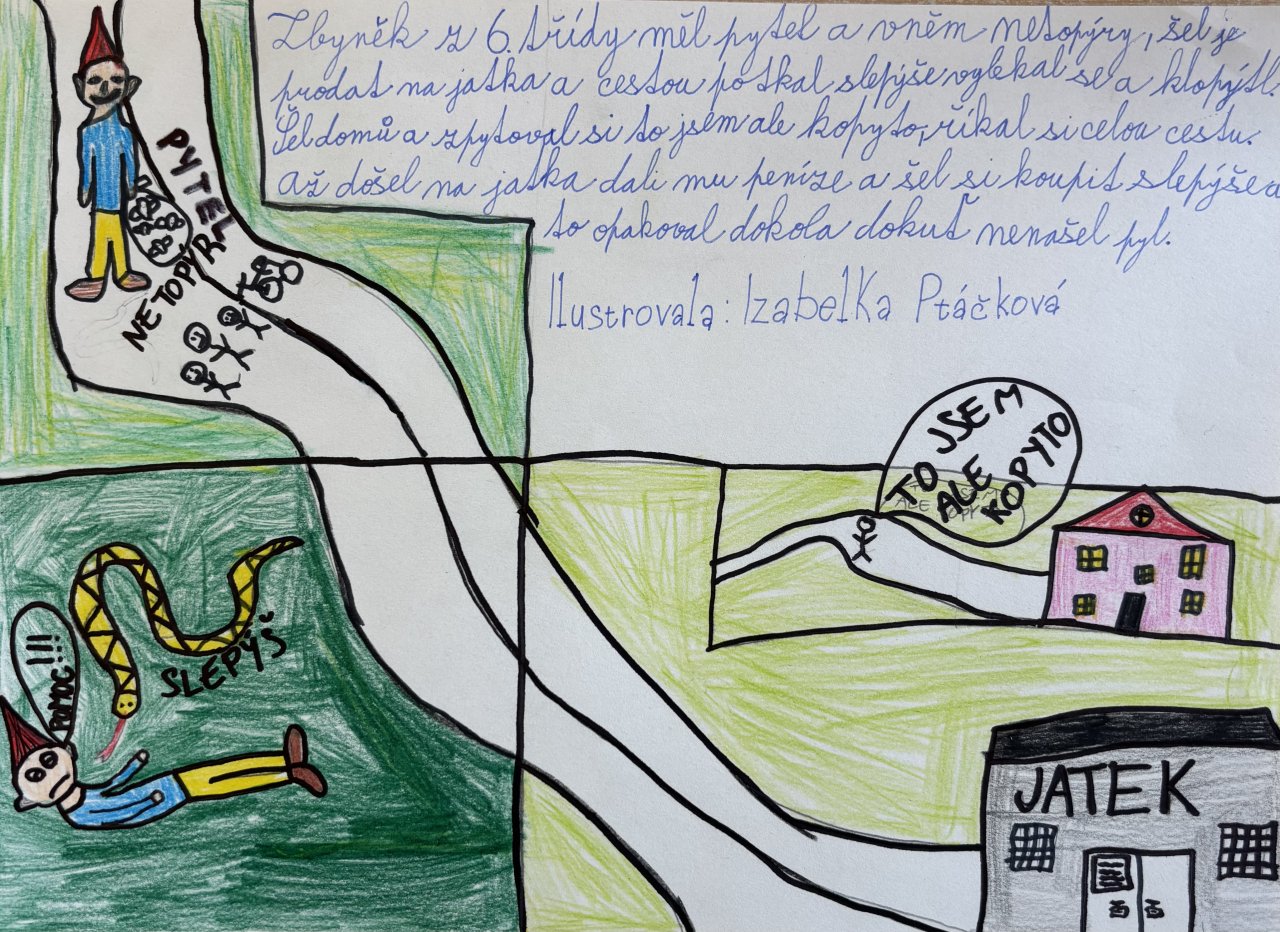 Zbyněk z 6. třídy měl pytel a vněm netopýry, šel je
prodat na jatka a cestou potkal slepýše vylekal se a klopýtl.
Šel domů a zpytoval si to jsem ale kopyto, říkal si celou cestu.
až došel na jatka dali mu peníze a šel si koupit slepýše a
to opakoval dokola dokuť nenašel pyl.
Ilustrovala: Izabelka Ptáčková
PYTEL
NETOPÝRŮ
TO JSEM
ALE
KOPYTO
POMOC!!!
SLEPÝŠ
JATEK